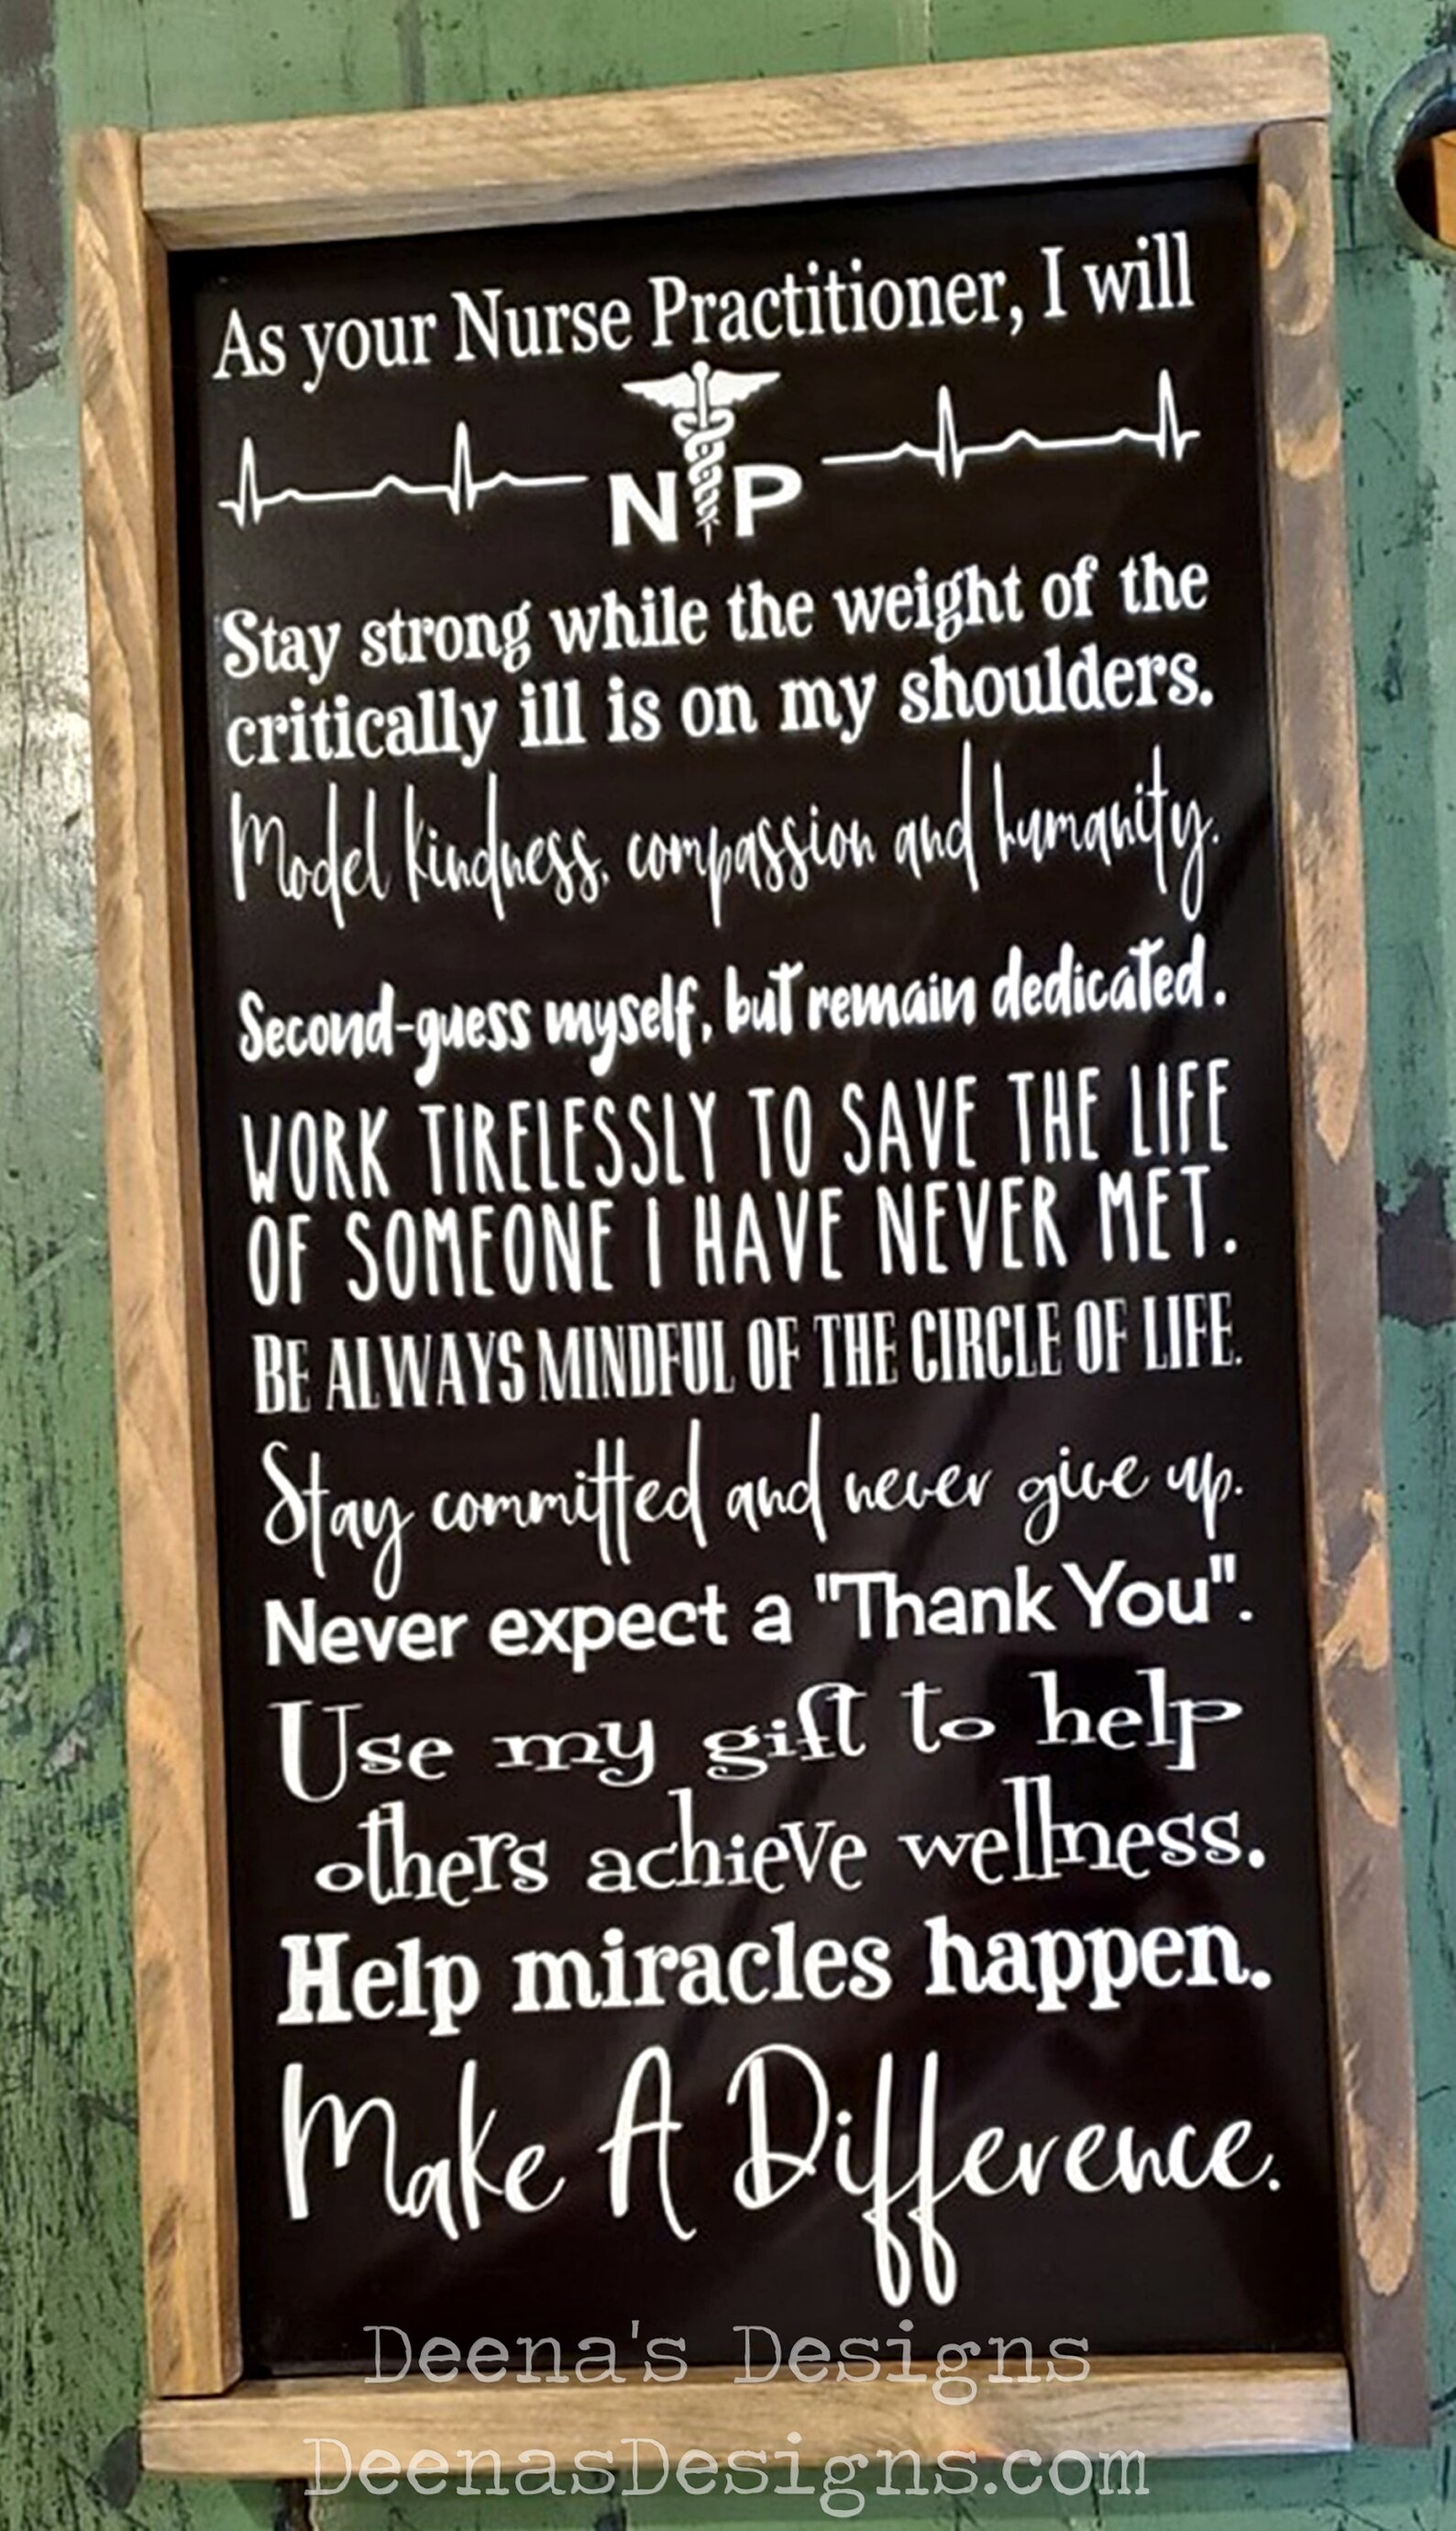 As your Nurse Practitioner, I will
N P
Stay strong while the weight of the
critically ill is on my shoulders.
Model kindness, compassion and humanity.
Second-guess myself, but remain dedicated.
WORK TIRELESSLY TO SAVE THE LIFE
OF SOMEONE I HAVE NEVER MET.
BE ALWAYS MINDFUL OF THE CIRCLE OF LIFE.
Stay committed and never give up.
Never expect a "Thank You".
Use my gift to help
others achieve wellness.
Help miracles happen.
Make A Difference.
Deena's Designs
DeenasDesigns.com